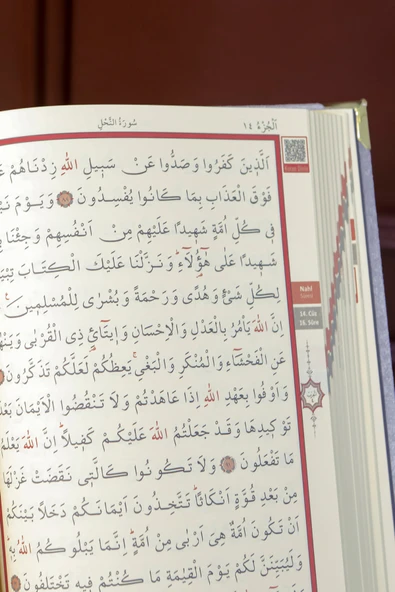 اَلْجُزْءُ ١٤
سُورَةُ النَّحْلِ
اَلَّذِينَ كَفَرُوا وَصَدُّوا عَنْ سَبِيلِ اللّٰهِ زِدْنَاهُمْ
فَوْقَ الْعَذَابِ بِمَا كَانُوا يُفْسِدُونَ ٨٨ وَيَوْمَ
فِي كُلِّ اُمَّةٍ شَهِيدًا عَلَيْهِمْ مِنْ اَنْفُسِهِمْ وَجِئْنَا
شَهِيدًا عَلٰى هٰٓؤُ۬لَٓاءِ وَنَزَّلْنَا عَلَيْكَ الْكِتَابَ
لِكُلِّ شَيْءٍ وَهُدًى وَرَحْمَةً وَبُشْرٰى لِلْمُسْلِمِينَ
اِنَّ اللّٰهَ يَأْمُرُ بِالْعَدْلِ وَالْاِحْسَانِ وَا۪يتَٓائِ ذِي الْقُرْبٰى
عَنِ الْفَحْشَٓاءِ وَالْمُنْكَرِ وَالْبَغْيِ يَعِظُكُمْ لَعَلَّكُمْ تَذَكَّرُونَ
وَاَوْفُوا بِعَهْدِ اللّٰهِ اِذَا عَاهَدْتُمْ وَلَا تَنْقُضُوا الْاَيْمَانَ
تَوْكِيدِهَا وَقَدْ جَعَلْتُمُ اللّٰهَ عَلَيْكُمْ كَفِيلًا اِنَّ اللّٰهَ
مَا تَفْعَلُونَ ٩١ وَلَا تَكُونُوا كَالَّتِي نَقَضَتْ غَزْلَهَا
مِنْ بَعْدِ قُوَّةٍ اَنْكَاثًا تَتَّخِذُونَ اَيْمَانَكُمْ دَخَلًا بَيْنَكُمْ
اَنْ تَكُونَ اُمَّةٌ هِيَ اَرْبٰى مِنْ اُمَّةٍ اِنَّمَا يَبْلُوكُمُ اللّٰهُ بِهِ
وَلَيُبَيِّنَنَّ لَكُمْ يَوْمَ الْقِيٰمَةِ مَا كُنْتُمْ فِيهِ تَخْتَلِفُونَ
Nahl
14. Cüz
16. Sûre